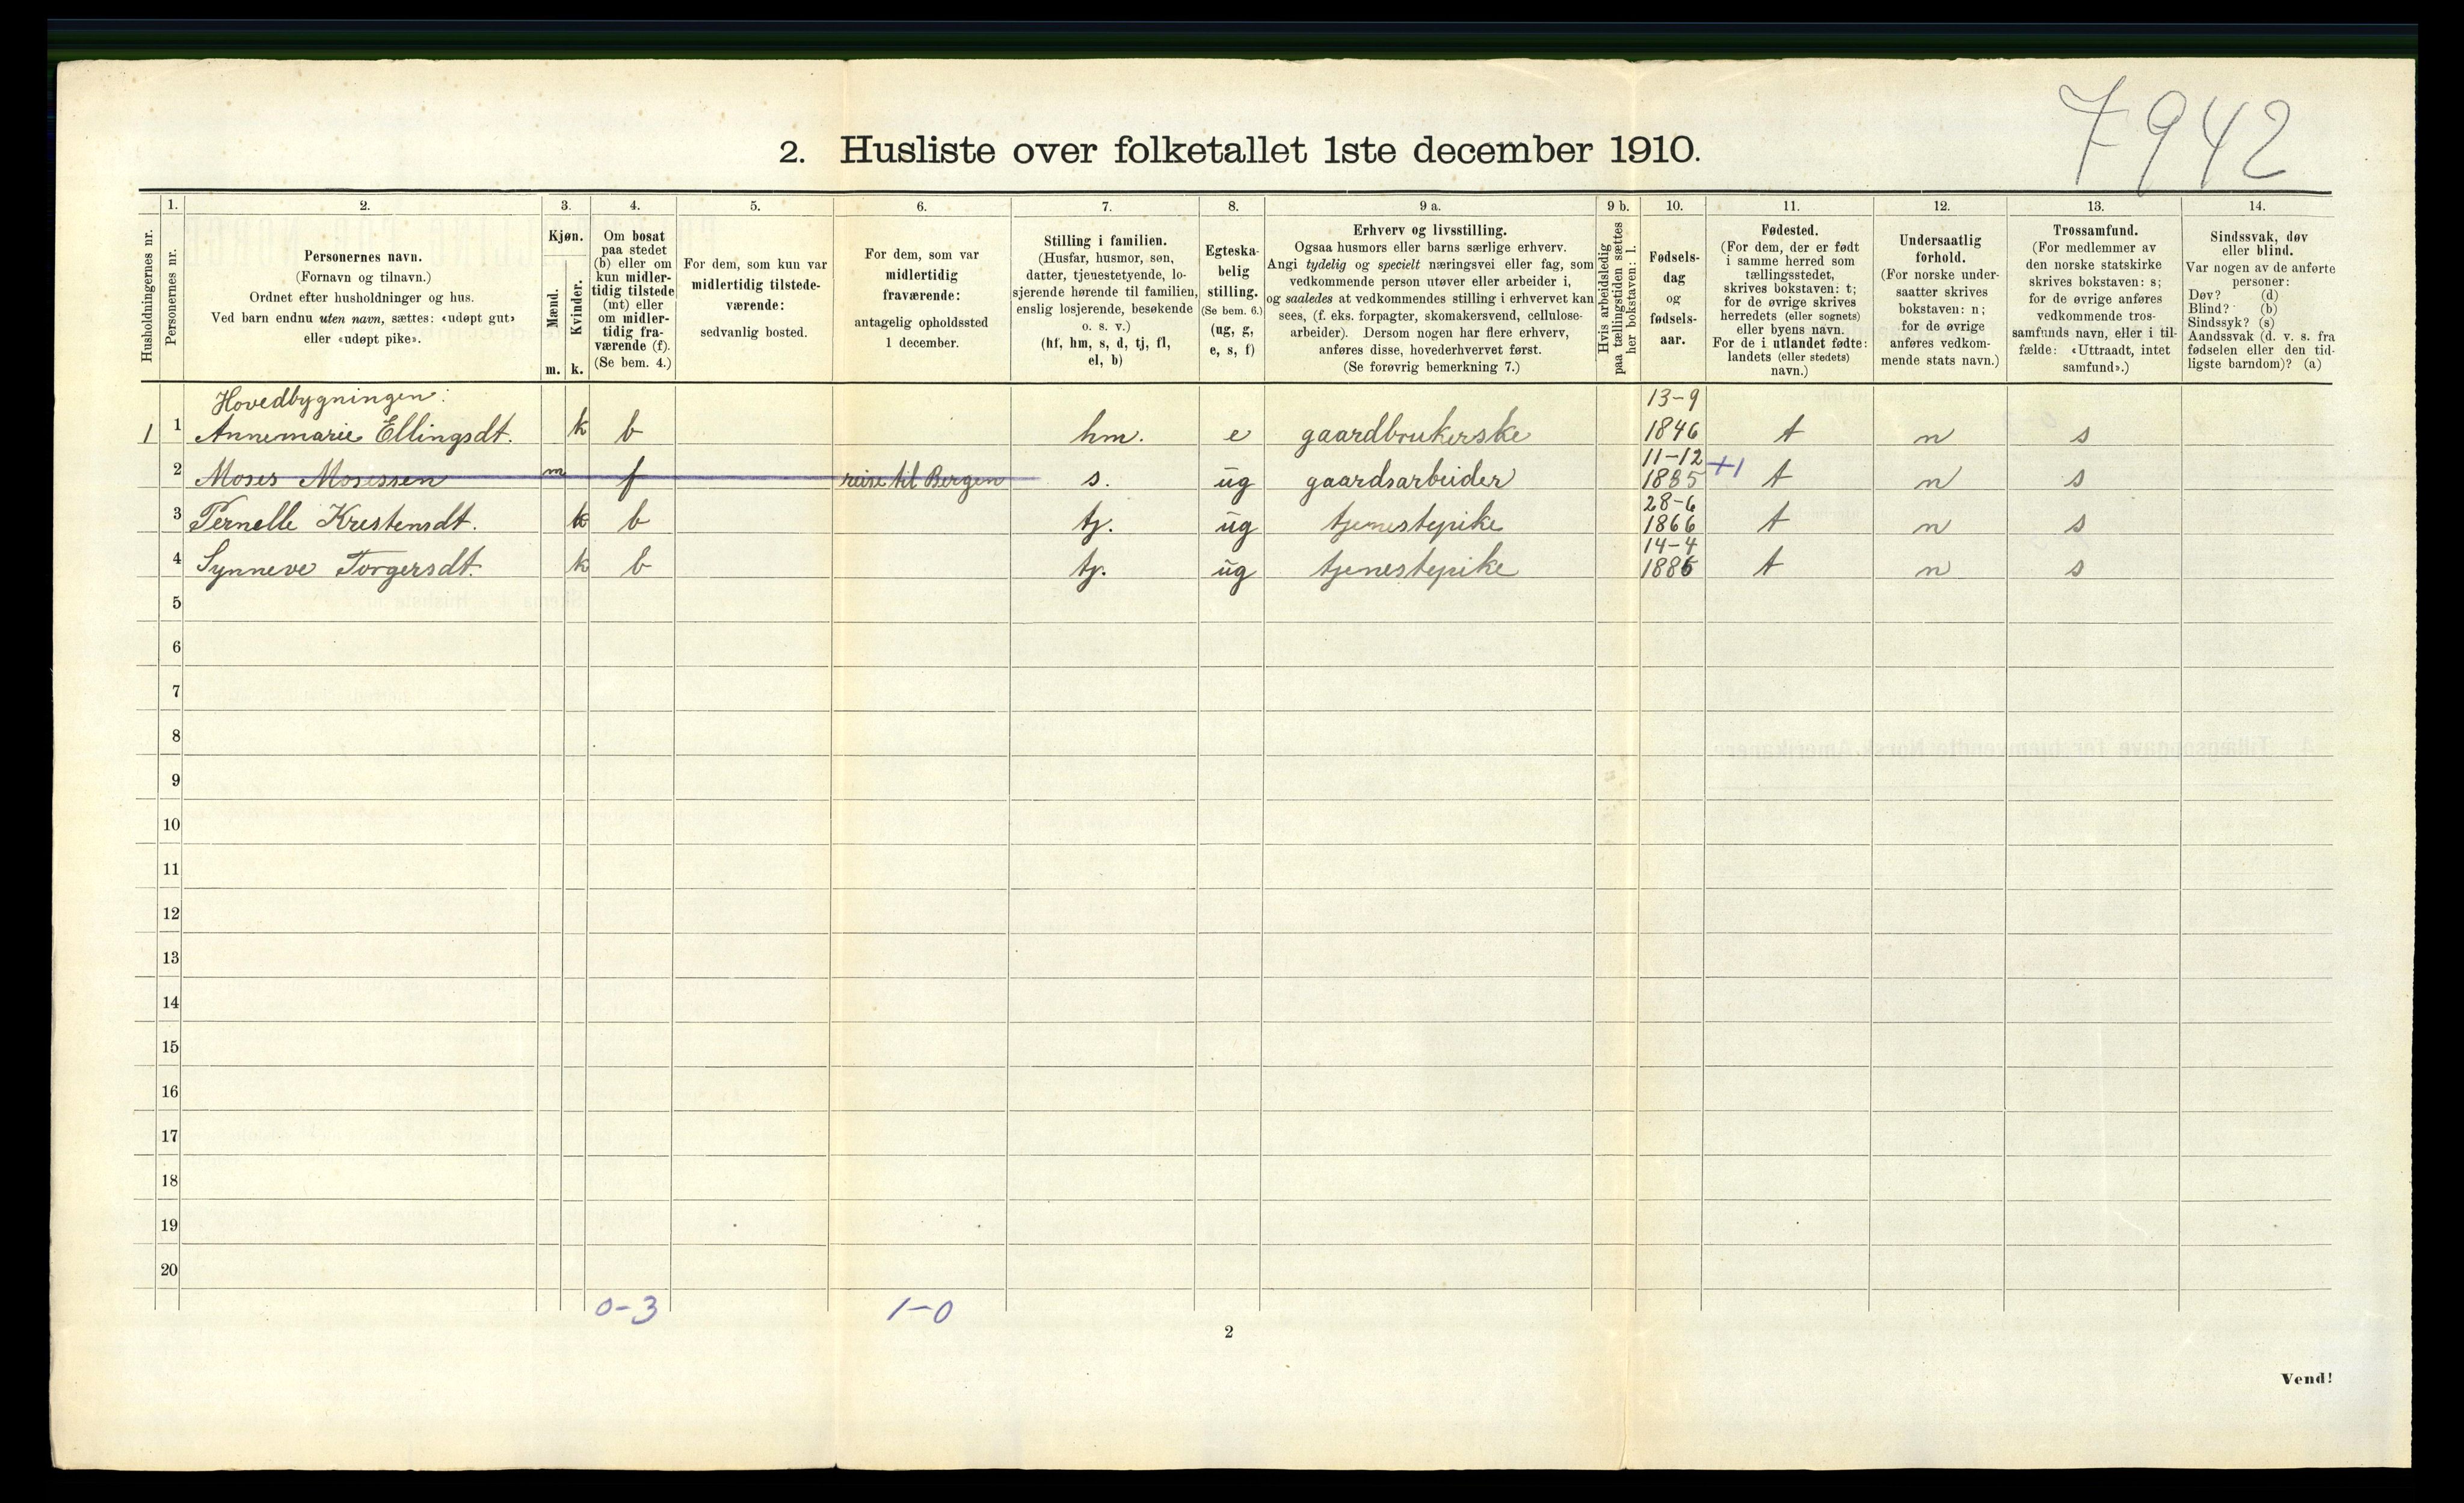 7942
2. Husliste over folketallet 1ste december 1910.
Husholdningernes nr.
1.
Personernes nr.
2.
Personernes navn.
(Fornavn og tilnavn.)
Ordnet efter husholdninger og hus.
Ved barn endnu uten navn, sættes: «udøpt gut»
eller «udøpt pike».
3.
Kjøn.
Mænd.
Kvinder.
m. k.
4.
Om bosat
paa stedet
(b) eller om
kun midler-
tidig tilstede
(mt) eller
om midler-
tidig fra-
værende (f).
(Se bem. 4.)
5.
For dem, som kun var
midlertidig tilstede-
værende:
sedvanlig bosted.
6.
For dem, som var
midlertidig
fraværende:
antagelig opholdssted
1 december.
7.
Stilling i familien.
(Husfar, husmor, søn,
datter, tjenestetyende, lo-
sjerende hørende til familien,
enslig losjerende, besøkende
o. s. v.)
(hf, hm, s, d, tj, fl,
el, b)
8.
Egteska-
belig
stilling.
(Se bem. 6.)
(ug, g,
e, s, f)
9 a.
Erhverv og livsstilling.
Ogsaa husmors eller barns særlige erhverv.
Angi tydelig og specielt næringsvei eller fag, som
vedkommende person utøver eller arbeider i,
og saaledes at vedkommendes stilling i erhvervet kan
sees, (f. eks. forpagter, skomakersvend, cellulose-
arbeider). Dersom nogen har flere erhverv,
anføres disse, hovederhvervet først.
(Se forøvrig bemerkning 7.)
9 b.
Hvis arbeidsledig
paa tællingstiden sættes
her bokstaven: l.
10.
Fødsels-
dag
og
fødsels-
aar.
11.
Fødested.
(For dem, der er født
i samme herred som
tællingsstedet,
skrives bokstaven: t;
for de øvrige skrives
herredets (eller sognets)
eller byens navn.
For de i utlandet fødte:
landets (eller stedets)
navn.)
12.
Undersaatlig
forhold.
(For norske under-
saatter skrives
bokstaven: n;
for de øvrige
anføres vedkom-
mende stats navn.)
13.
Trossamfund.
(For medlemmer av
den norske statskirke
skrives bokstaven: s;
for de øvrige anføres
vedkommende tros-
samfunds navn, eller i til-
fælde: «Uttraadt, intet
samfund».)
14.
Sindssvak, døv
eller blind.
Var nogen av de anførte
personer:
Døv? (d)
Blind? (b)
Sindssyk? (s)
Aandssvak (d. v. s. fra
fødselen eller den tid-
ligste barndom)? (a)
Hovedbygningen: 13-9
1 1 Annemarie Ellingsdt. k b hm. e gaardbrukerske 1846 t n s
11-12
2 Moses Mosessen m f reise til Bergen s. ug gaardsarbeider 1885 +1 t n s
28-6
3 Pernelle Kristensdt. k b tj. ug tjenestepike 1866 t n s
14-4
4 Synneve Torgersdt. k b tj. ug tjenestepike 1886 t n s
5
6
7
8
9
10
11
12
13
14
15
16
17
18
19
20
0-3 1-0
2
Vend!